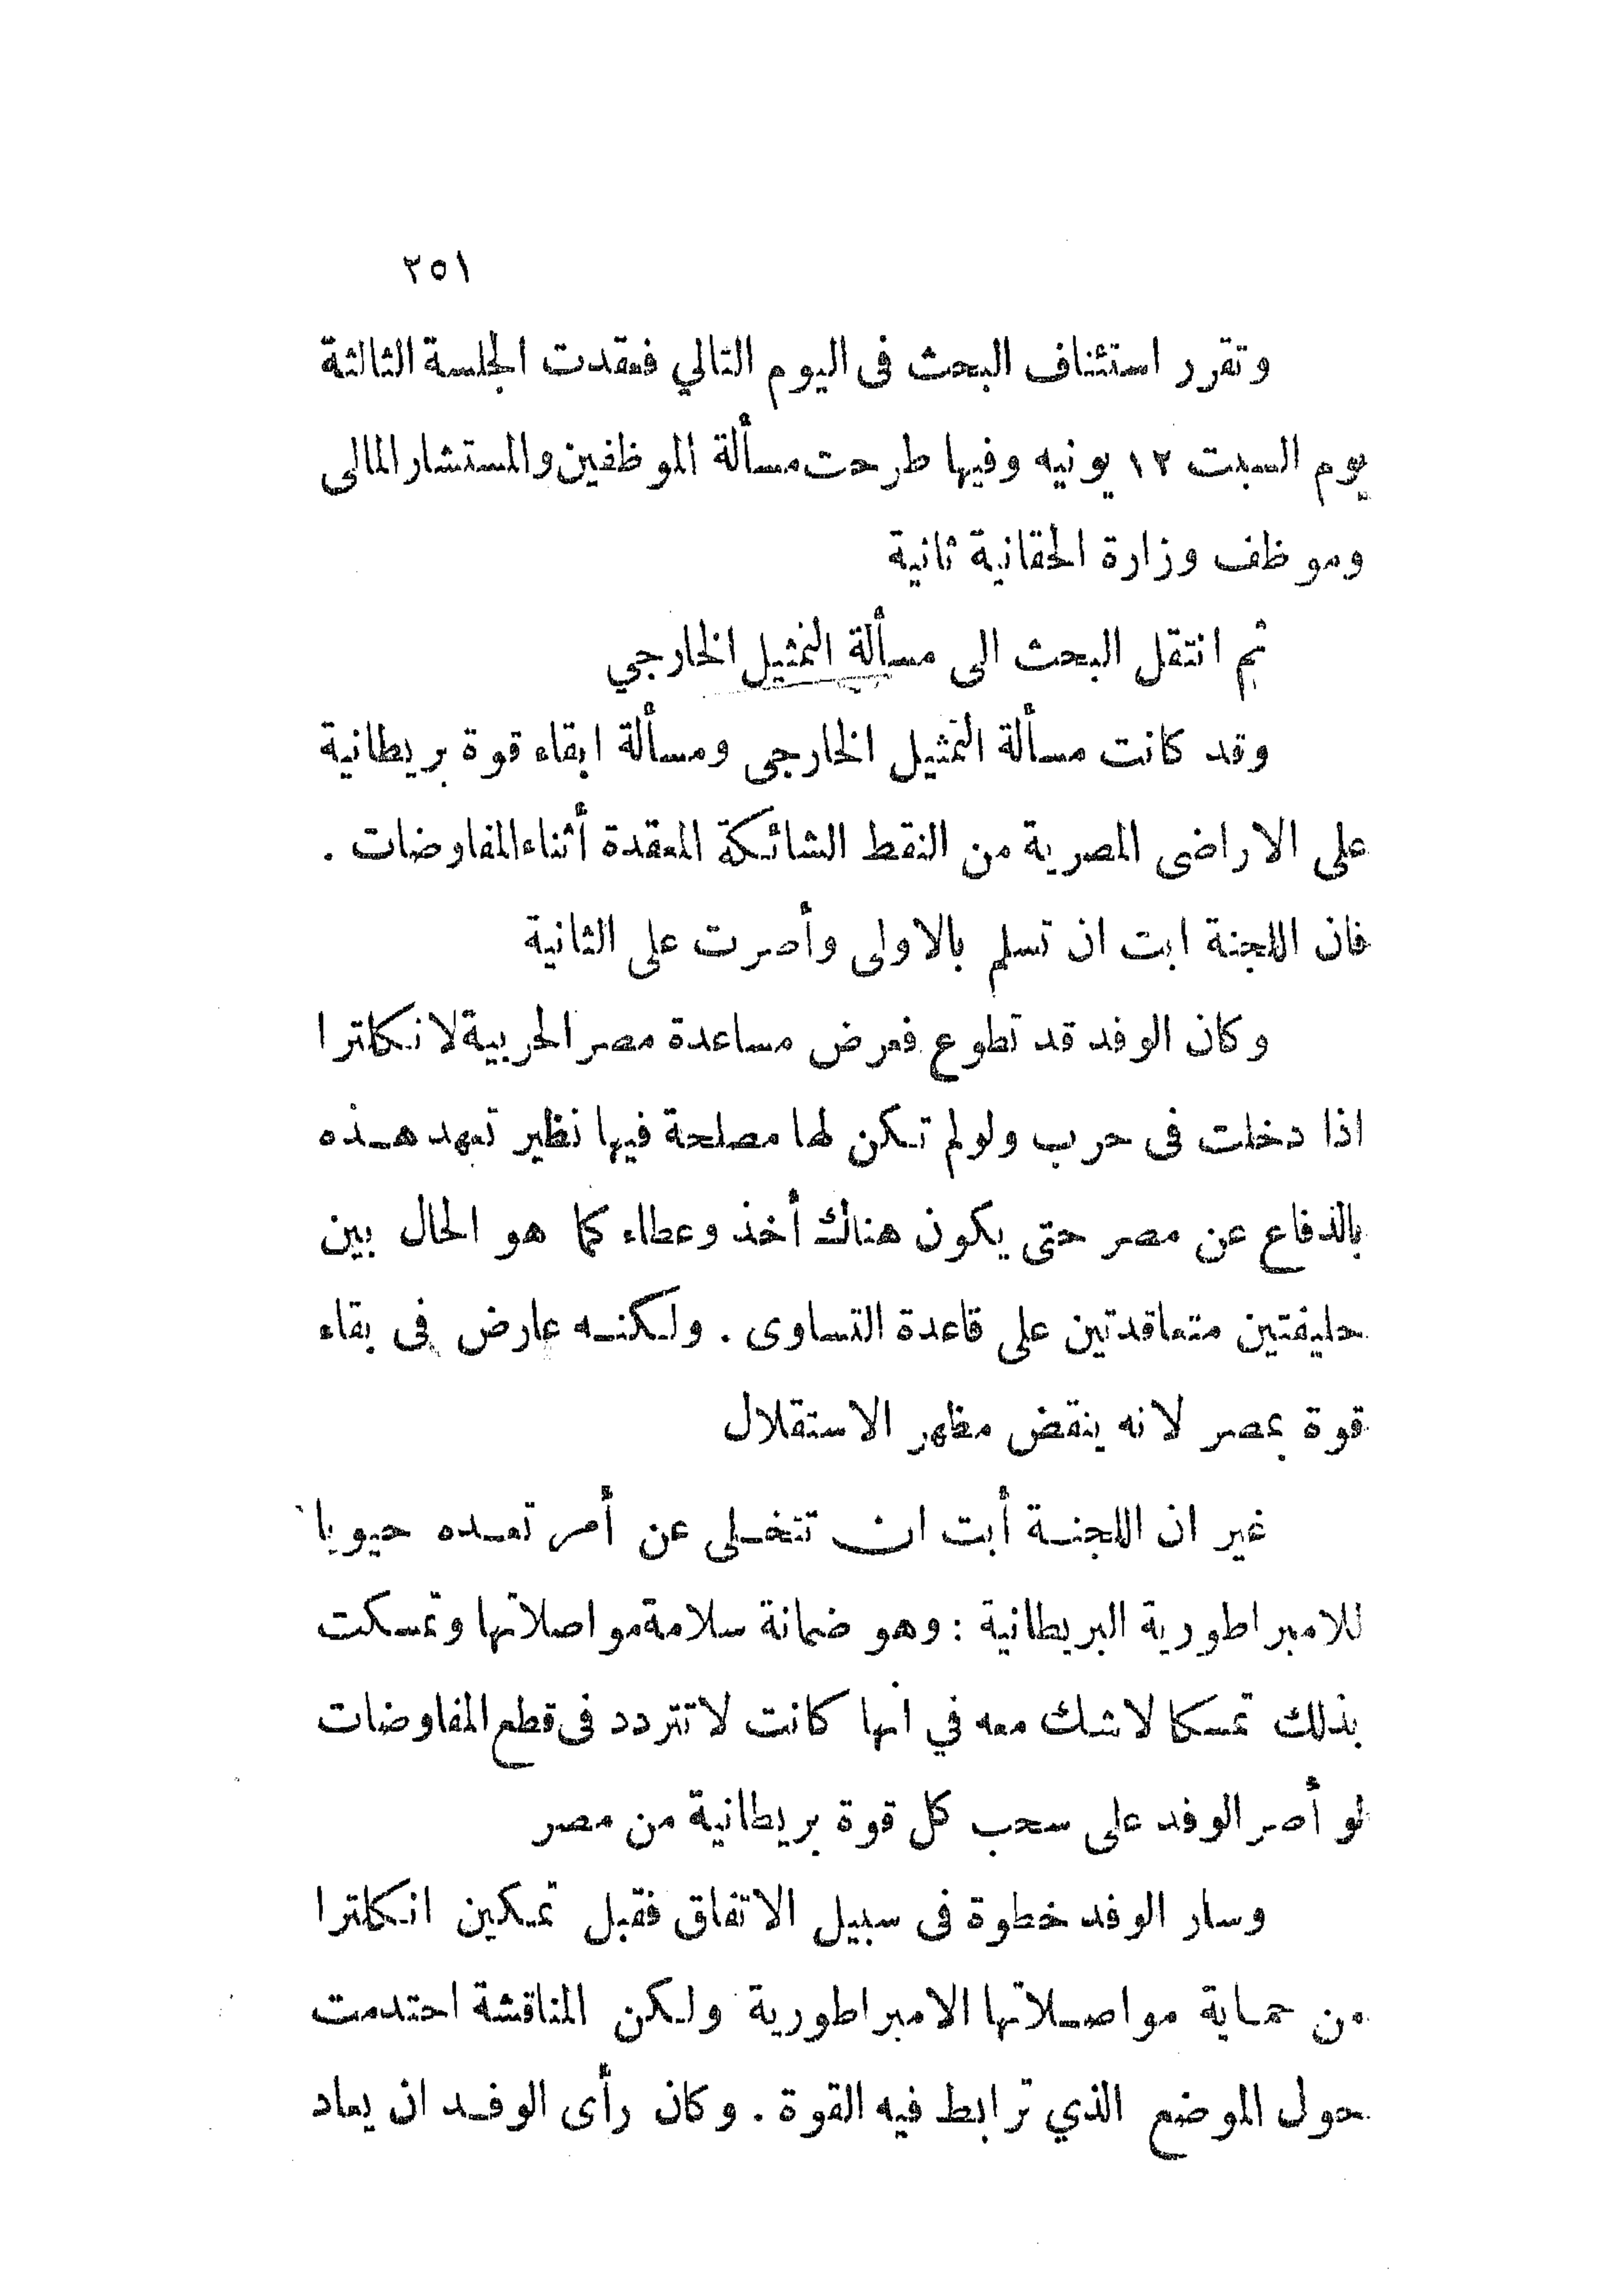 ٢٥١
وتقرر استئناف البحث فى اليوم التالي فعقدت الجلسة الثالثة
يوم السبت ١٢ يونيه وفيها طرحت مسألة الموظفين والمستشار المالى
وموظف وزارة الحقانية ثانية
ثم انتقل البحث الى مسألة التمثيل الخارجي
وقد كانت مسألة التمثيل الخارجى ومسألة ابقاء قوة بريطانية
على الاراضى المصرية من النقط الشائكة المعقدة أثناء المفاوضات .
فان اللجنة ابت ان تسلم بالاولى وأصرت على الثانية
وكان الوفد قد تطوع فعرض مساعدة مصر الحربية لانكلترا
اذا دخلت فى حرب ولو لم تكن لها مصلحة فيها نظير تعهد هذه
بالدفاع عن مصر حتى يكون هناك أخذ وعطاء كما هو الحال بين
حليفتين متعاقدتين على قاعدة التساوى . ولكنه عارض فى بقاء
قوة بمصر لانه ينقض مظهر الاستقلال
غير ان اللجنة أبت ان تتخلى عن أمر تعده حيويا
للامبراطورية البريطانية : وهو ضمانة سلامة مواصلاتها وتمسكت
بذلك تمسكا لا شك معه في انها كانت لا تتردد فى قطع المفاوضات
لو أصر الوفد على سحب كل قوة بريطانية من مصر
وسار الوفد خطوة فى سبيل الاتفاق فقبل تمكين انكلترا
من حماية مواصلاتها الامبراطورية ولكن المناقشة احتدمت
حول الموضع الذي ترابط فيه القوة . وكان رأى الوفد ان يعاد